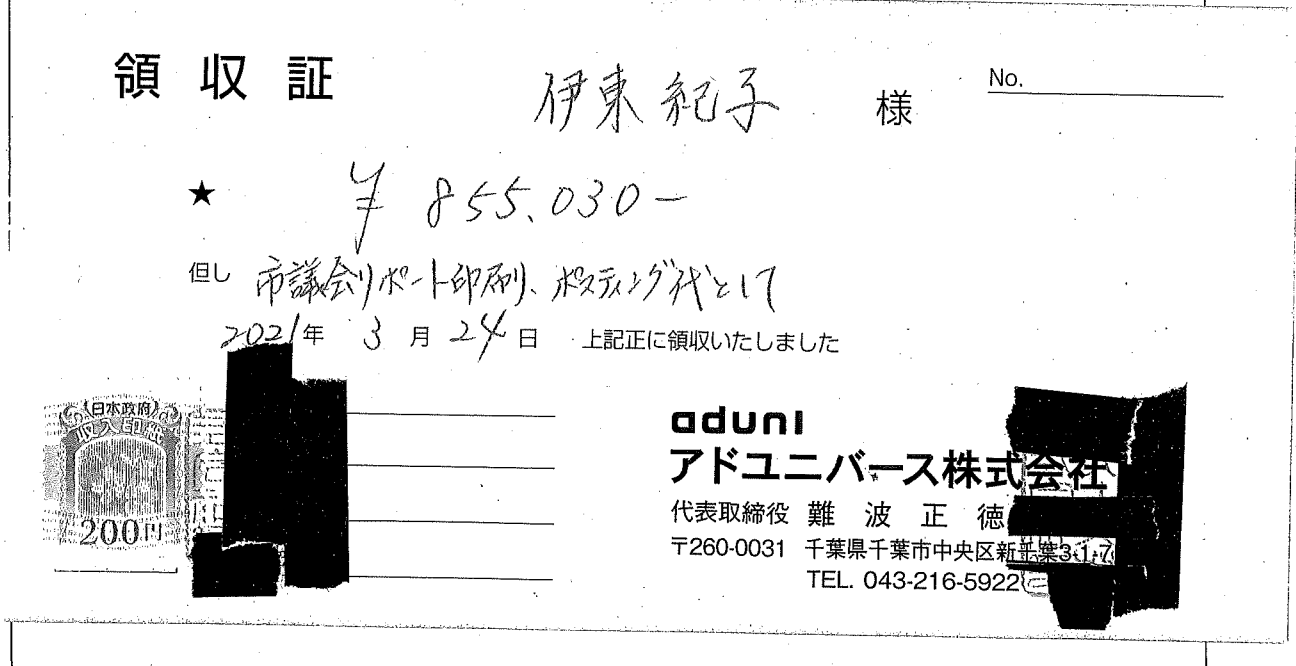 領収証 伊東紀子 様 No.
★ ¥855.030−
但し 市議会リポート印刷、ポスティング代として
2021年 3月 24日 上記正に領収いたしました
日本政府
収入印紙
200円
aduni
アドユニバース株式会社
代表取締役 難波正徳
〒260-0031 千葉県千葉市中央区新千葉3-1-7
TEL. 043-216-5922